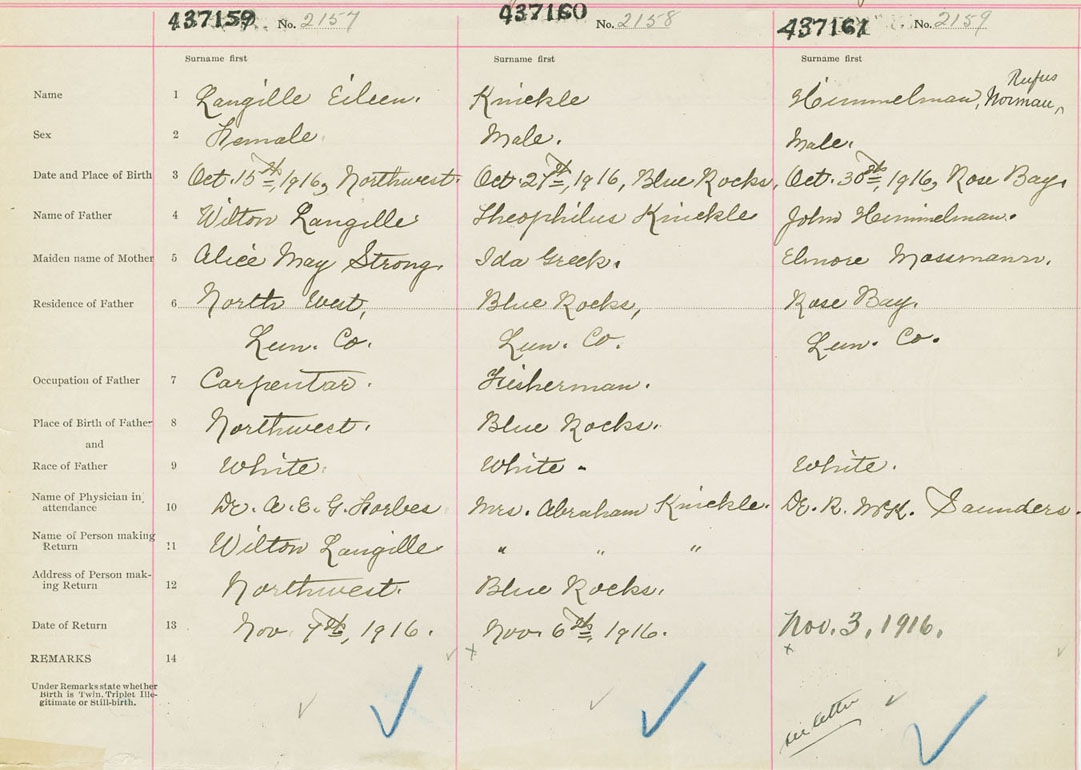 437159 No. 2157 437160 No. 2158 437161 No. 2159
Surname first Surname first Surname first
Rufus
Name 1 Langille Eileen. Knickle Himmelman, Norman,
Sex 2 Female Male. Male.
Date and Place of Birth 3 Oct. 15th, 1916, Northwest. Oct. 27th, 1916, Blue Rocks, Oct. 30th, 1916, Rose Bay.
Name of Father 4 Wilton Langille Theophilus Knickle John Himmelman.
Maiden name of Mother 5 Alice May Strong. Ida Greek. Elnore Mossmann.
Residence of Father 6 North West, Blue Rocks, Rose Bay.
Lun. Co. Lun. Co. Lun. Co.
Occupation of Father 7 Carpentar. Fisherman.
Place of Birth of Father 8 Northwest. Blue Rocks.
and
Race of Father 9 White. White. White.
Name of Physician in
attendance 10 Dr. A. E. G. Forbes Mrs. Abraham Knickle. Dr. R. McK. Saunders.
Name of Person making
Return 11 Wilton Langille " " "
Address of Person mak-
ing Return 12 Northwest. Blue Rocks.
Date of Return 13 Nov. 7th, 1916. Nov. 6th, 1916. Nov. 3, 1916.
REMARKS 14
Under Remarks state whether
Birth is Twin, Triplet Ille-
gitimate or Still-birth.
see letter